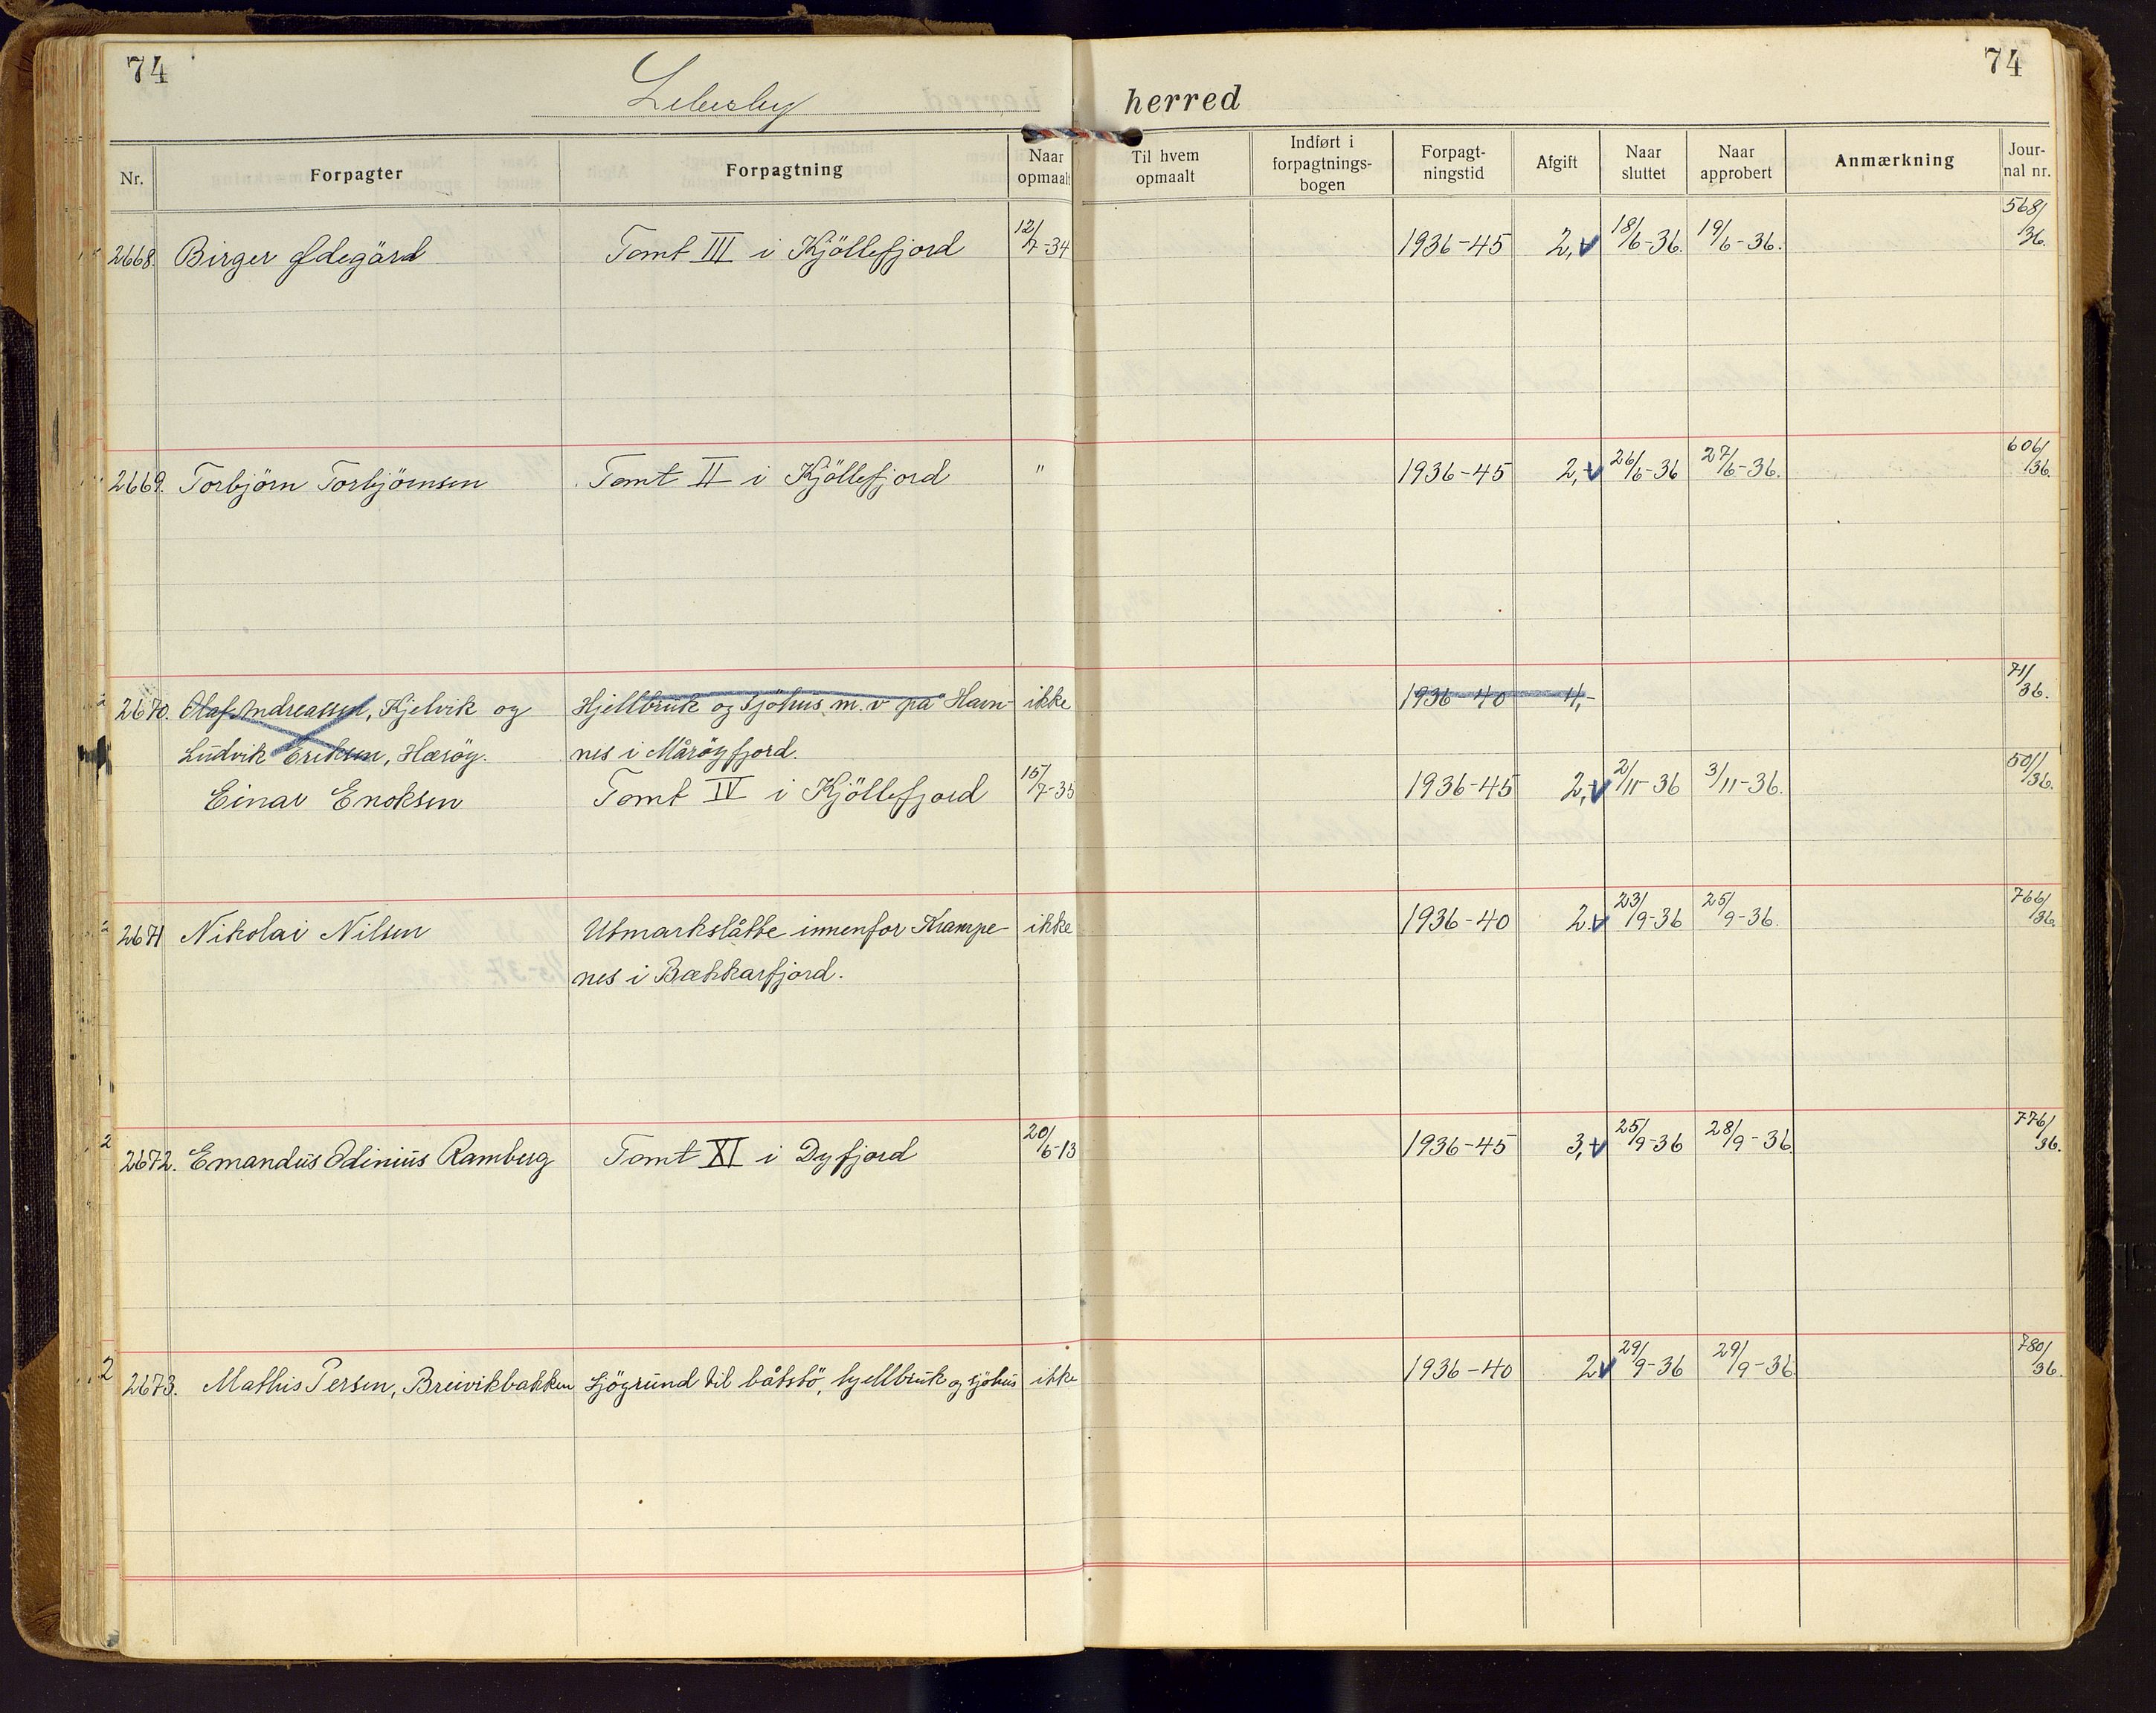 74
Lebesby herred
74
Nr. Forpagter Forpagtning Naar opmaalt Til hvem opmaalt Indført i forpagtnings-bogen Forpagt-ningstid Afgift Naar sluttet Naar approbert Anmærkning Jour-nal nr.
2668. Birger Ødegård Tomt III i Kjöllefjord 12/7-34 1936-45 2,- 18/6-36. 19/6-36. 568/36.
2669. Torbjörn Torbjörnsen Tomt II i Kjöllefjord " 1936-45 2,- 26/6-36 27/6-36. 606/36.
2670. Olaf Andreassen, Kjelvik og Hjellbruk og sjöhus m.v. på Havn- ikke 1936-40 4,- 71/36.
Ludvik Eriksen, Hærøy. nes i Måröyfjord.
Einar Enoksen Tomt IV i Kjöllefjord 15/7-35 1936-45 2,- 2/11-36 3/11-36. 501/36.
2671 Nikolai Nilsen Utmarkslåtte innenfor Krampe- ikke 1936-40 2.- 23/9-36 25/9-36. 766/36.
nes i Bekkarfjord.
2 2672. Emandus Odinius Ramberg Tomt XI i Dyfjord 20/6-13 1936-45 3,- 25/9-36 28/9-36. 776/36.
2 2673. Mathis Persen, Breivikbakken Sjögrund til båtstö, hjellbruk og sjöhus ikke 1936-40 2 29/9-36 29/9-36. 780/36.